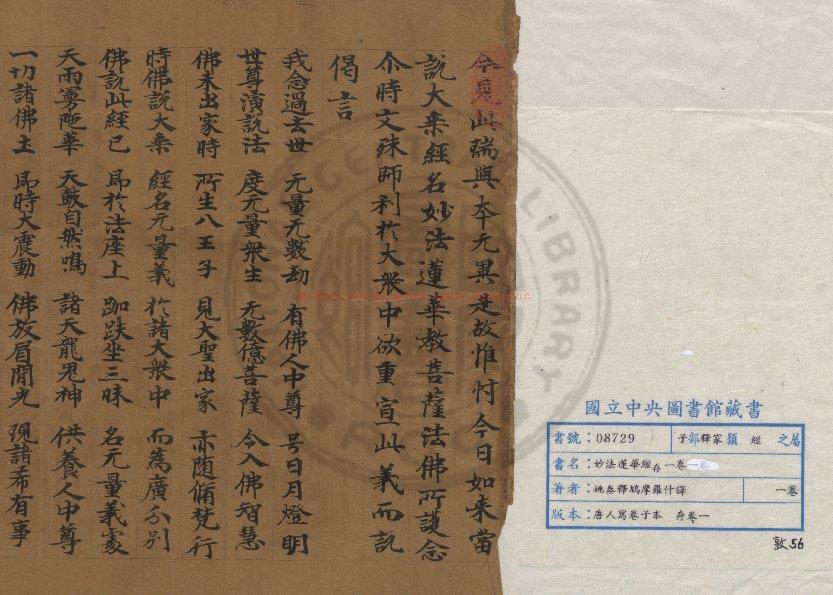 今見此瑞與本无異是故惟忖今日如来當
説大乗經名妙法蓮華教菩薩法佛所護念
尒時文殊師利於大衆中欲重宣此義而説
偈言
我念過去世 无量无數劫 有佛人中尊 号日月燈明
世尊演説法 度无量衆生 无數億菩薩 令入佛智慧
佛未出家時 所生八王子 見大聖出家 亦随脩梵行
時佛説大乗 經名无量義 於諸大衆中 而為廣分別
佛説此經已 即於法座上 跏趺坐三昧 名无量義處
天雨曼陁華 天鼓自然鳴 諸天龍鬼神 供養人中尊
一切諸佛土 即時大震動 佛放眉閒光 現諸希有事
國立中央圖書館藏書
書號：08729 子部釋家類 經 之屬
書名：妙法蓮華經存一卷
著者：姚秦釋鳩摩羅什譯 一卷
版本：唐人寫卷子本 存卷一
敦56
CENTRAL LIBRARY